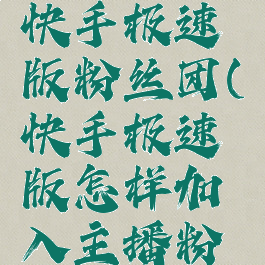 快手极速
版粉丝团(
快手极速
版怎样加
入主播粉